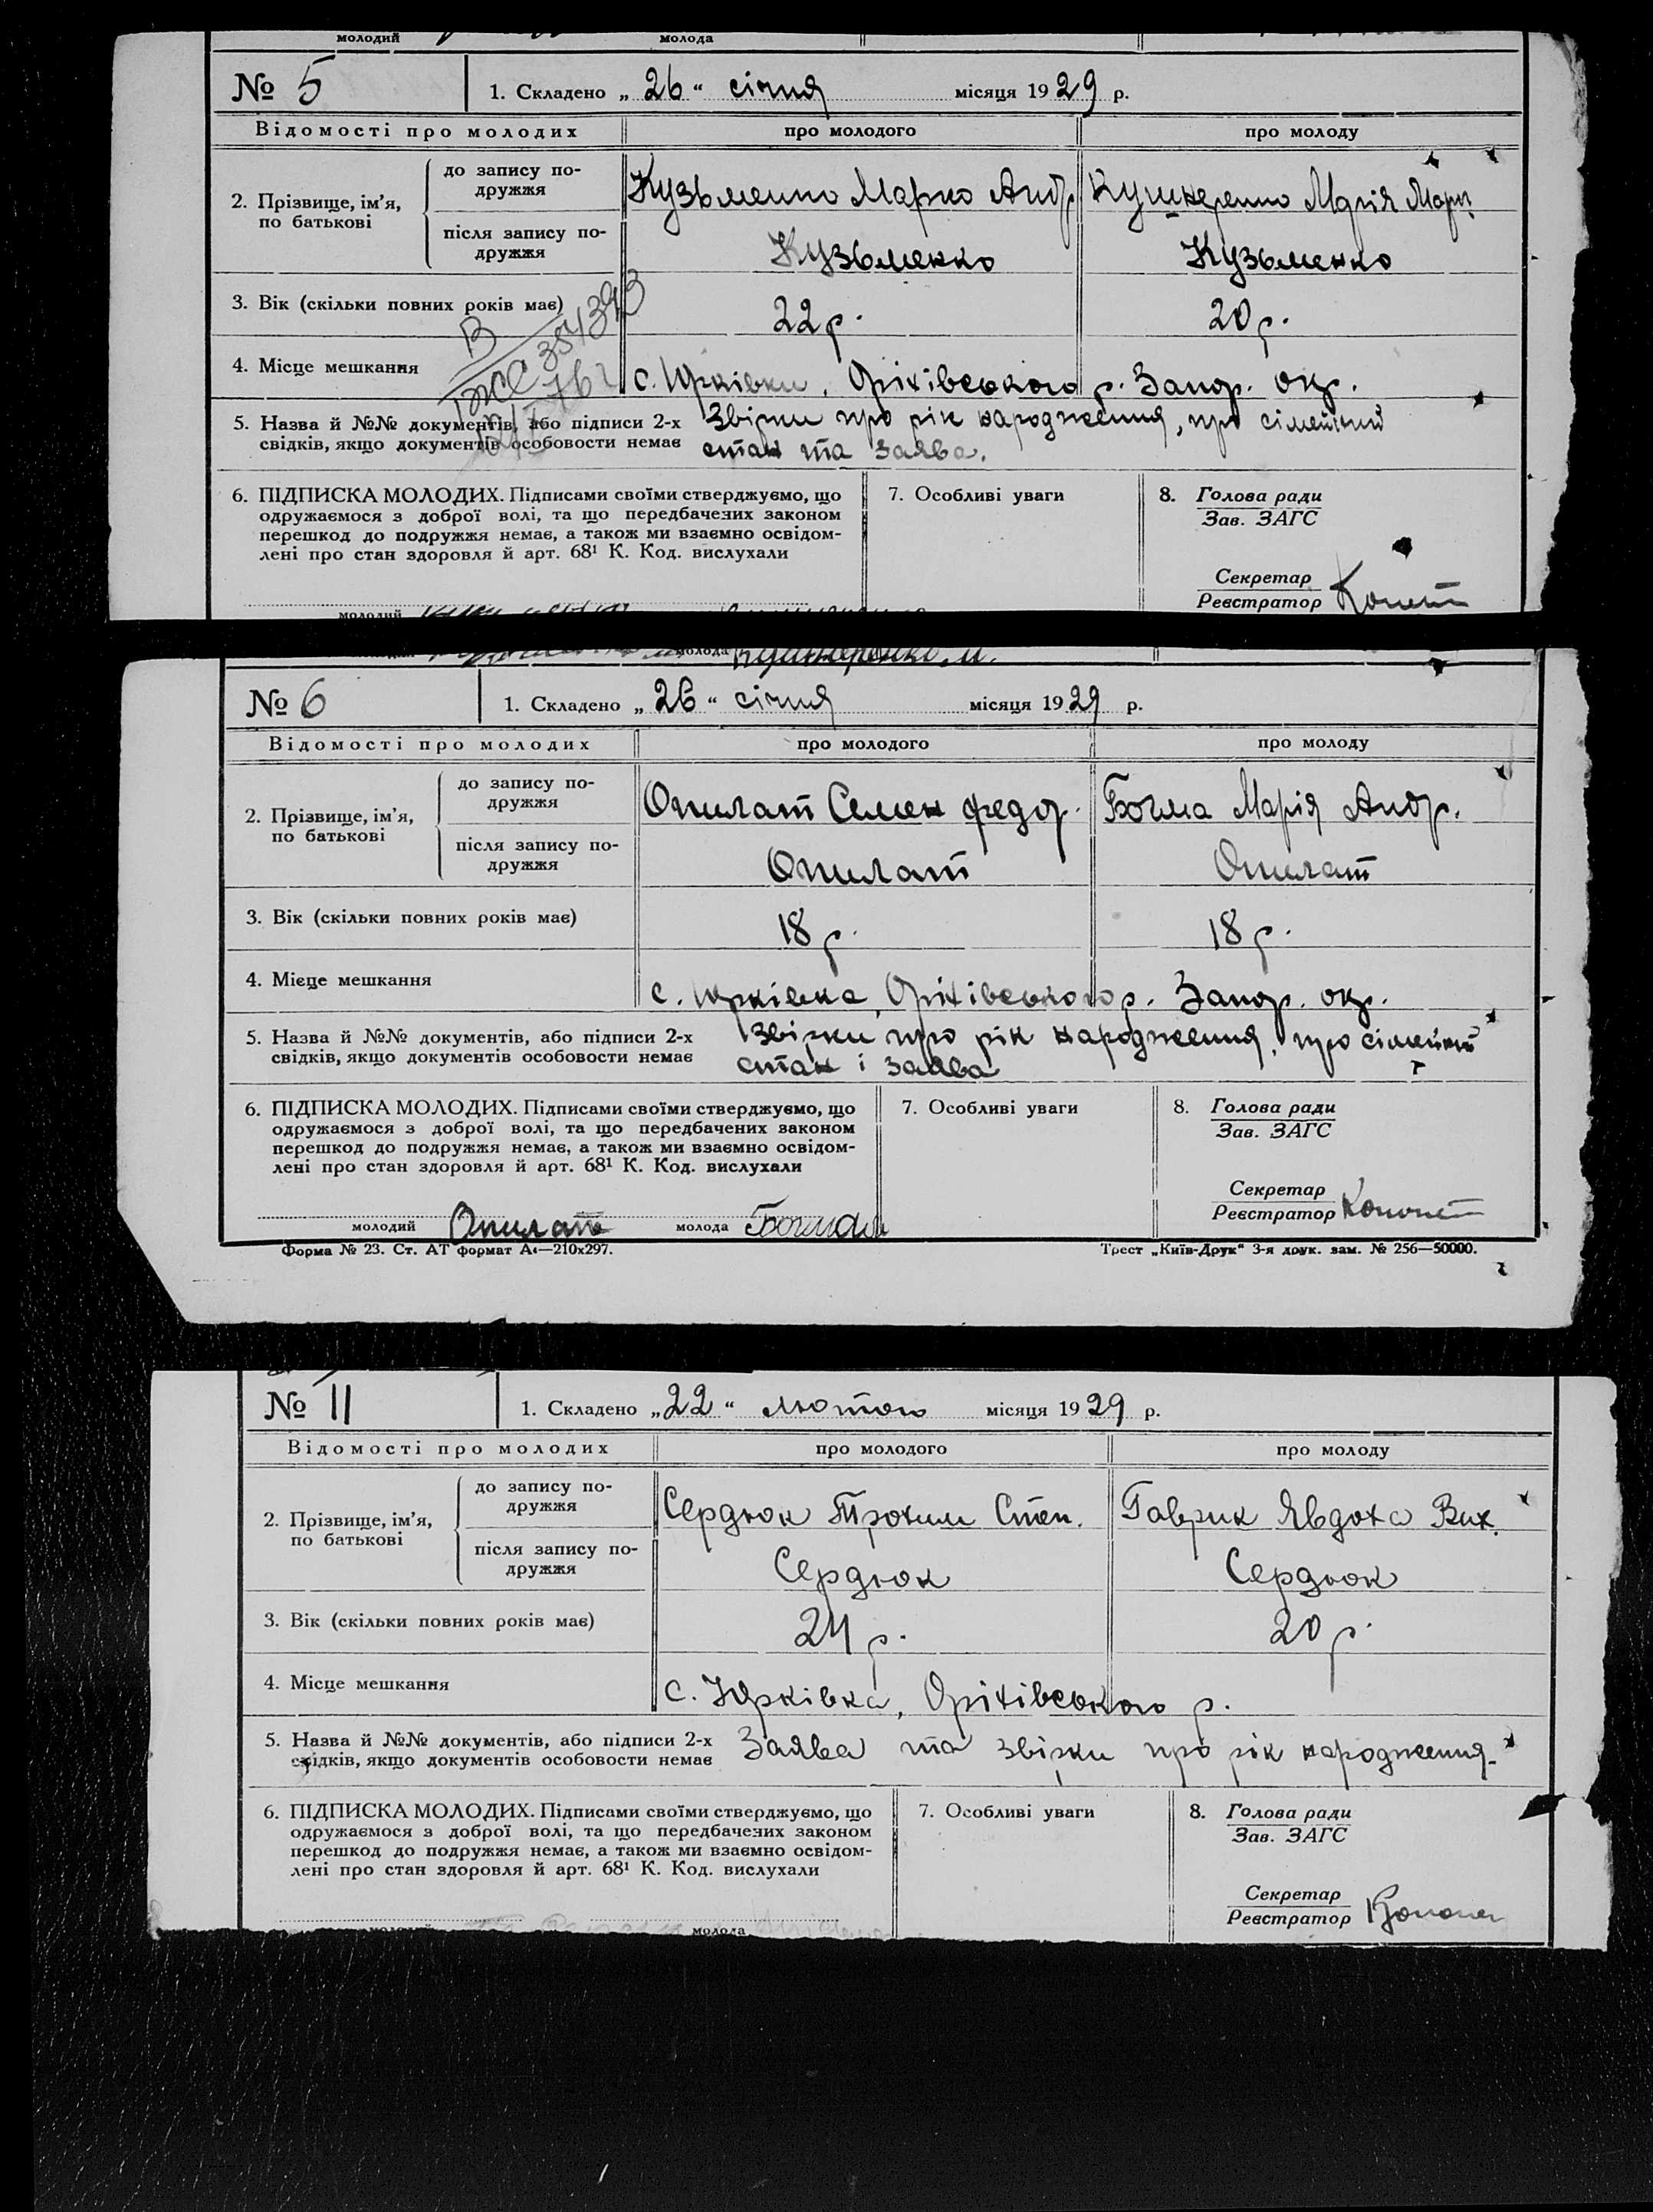 молодий молода
№ 5 1. Складено „ 26 “ січня місяця 19 29 р.
Відомості про молодих про молодого про молоду
2. Прізвище, ім’я, по батькові
до запису по-
дружжя
Кузьменко Марко Андр. Кушнеренко Марія Марк.
після запису по-
дружжя
Кузьменко Кузьменко
3. Вік (скільки повних років має) 22 р. 20 р.
4. Місце мешкання с. Юрківка, Оріхівського р. Запор. окр.
5. Назва й №№ документів, або підписи 2-х Звірки про рік народження, про сімейний
свідків, якщо документів особовости немає стан та заява.
6. ПІДПИСКА МОЛОДИХ. Підписами своїми стверджуємо, що
одружаємося з доброї волі, та що передбачених законом
перешкод до подружжя немає, а також ми взаємно освідом-
лені про стан здоровля й арт. 68¹ К. Код. вислухали
7. Особливі уваги
8. Голова ради
Зав. ЗАГС
Секретар
Реєстратор
молодий
молода Кушнеренко М.
№ 6 1. Складено „ 26 “ січня місяця 19 29 р.
Відомості про молодих про молодого про молоду
2. Прізвище, ім’я,
по батькові
до запису по-
дружжя
Опилат Семен Федор. Бочма Марія Андр.
після запису по-
дружжя
Опилат Опилат
3. Вік (скільки повних років має) 18 р. 18 р.
4. Місце мешкання с. Юрківка, Оріхівського р. Запор. окр.
5. Назва й №№ документів, або підписи 2-х Звірки про рік народження, про сімейний
свідків, якщо документів особовости немає стан і заява
6. ПІДПИСКА МОЛОДИХ. Підписами своїми стверджуємо, що
одружаємося з доброї волі, та що передбачених законом
перешкод до подружжя немає, а також ми взаємно освідом-
лені про стан здоровля й арт. 68¹ К. Код. вислухали
7. Особливі уваги
8. Голова ради
Зав. ЗАГС
Секретар
Реєстратор
молодий Опилат молода Бочма
Форма № 23. Ст. АТ формат А4—210х297. Трест „Київ-Друк“ 3-я друк. зам. № 256—50000.
№ 11 1. Складено „ 22 “ лютого місяця 19 29 р.
Відомості про молодих про молодого про молоду
2. Прізвище, ім’я,
по батькові
до запису по-
дружжя
Сердюк Трохим Степ. Гаврик Явдоха Вик.
після запису по-
дружжя
Сердюк Сердюк
3. Вік (скільки повних років має) 24 р. 20 р.
4. Місце мешкання с. Юрківка, Оріхівського р.
5. Назва й №№ документів, або підписи 2-х Заява та звірки про рік народження.
свідків, якщо документів особовости немає
6. ПІДПИСКА МОЛОДИХ. Підписами своїми стверджуємо, що
одружаємося з доброї волі, та що передбачених законом
перешкод до подружжя немає, а також ми взаємно освідом-
лені про стан здоровля й арт. 68¹ К. Код. вислухали
7. Особливі уваги
8. Голова ради
Зав. ЗАГС
Секретар
Реєстратор
молодий молода